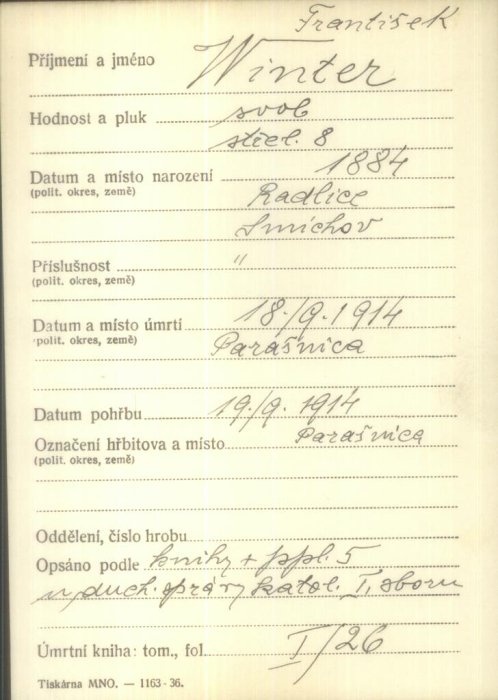 František
Příjmení a jméno Winter
Hodnost a pluk svob
střel. 8
Datum a místo narození 1884
(polit. okres, země) Radlice
Smíchov
Příslušnost "
(polit. okres, země)
Datum a místo úmrtí 18./9. 1914
(polit. okres, země) Parašnica
Datum pohřbu 19./9. 1914
Označení hřbitova a místo Parašnica
(polit. okres, země)
Oddělení, číslo hrobu
Opsáno podle knihy + ppl. 5
duch. správy katol. I. sboru
Úmrtní kniha: tom., fol. I/26
Tiskárna MNO. — 1163-36.